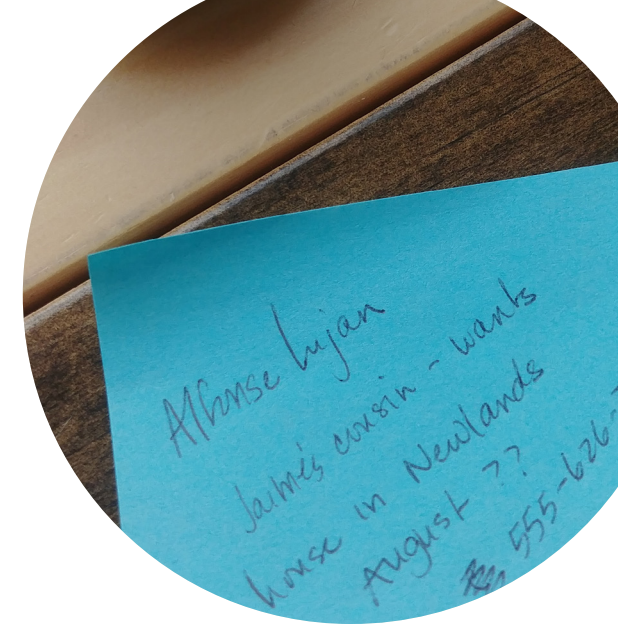 Alfonse Lujan
Jaime's cousin - wants
house in Newlands
August ??
555-626-